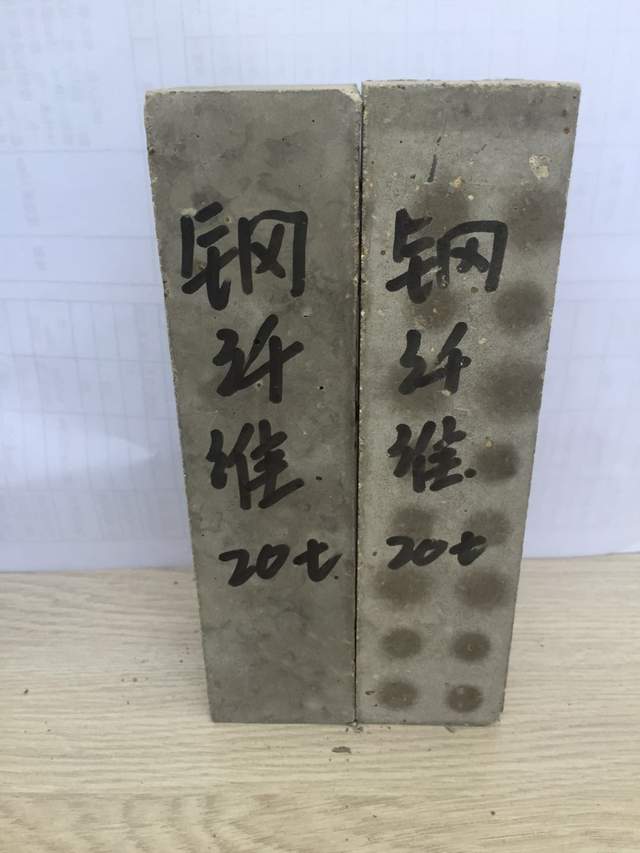 钢
纤
维
20t
钢
纤
维
20t